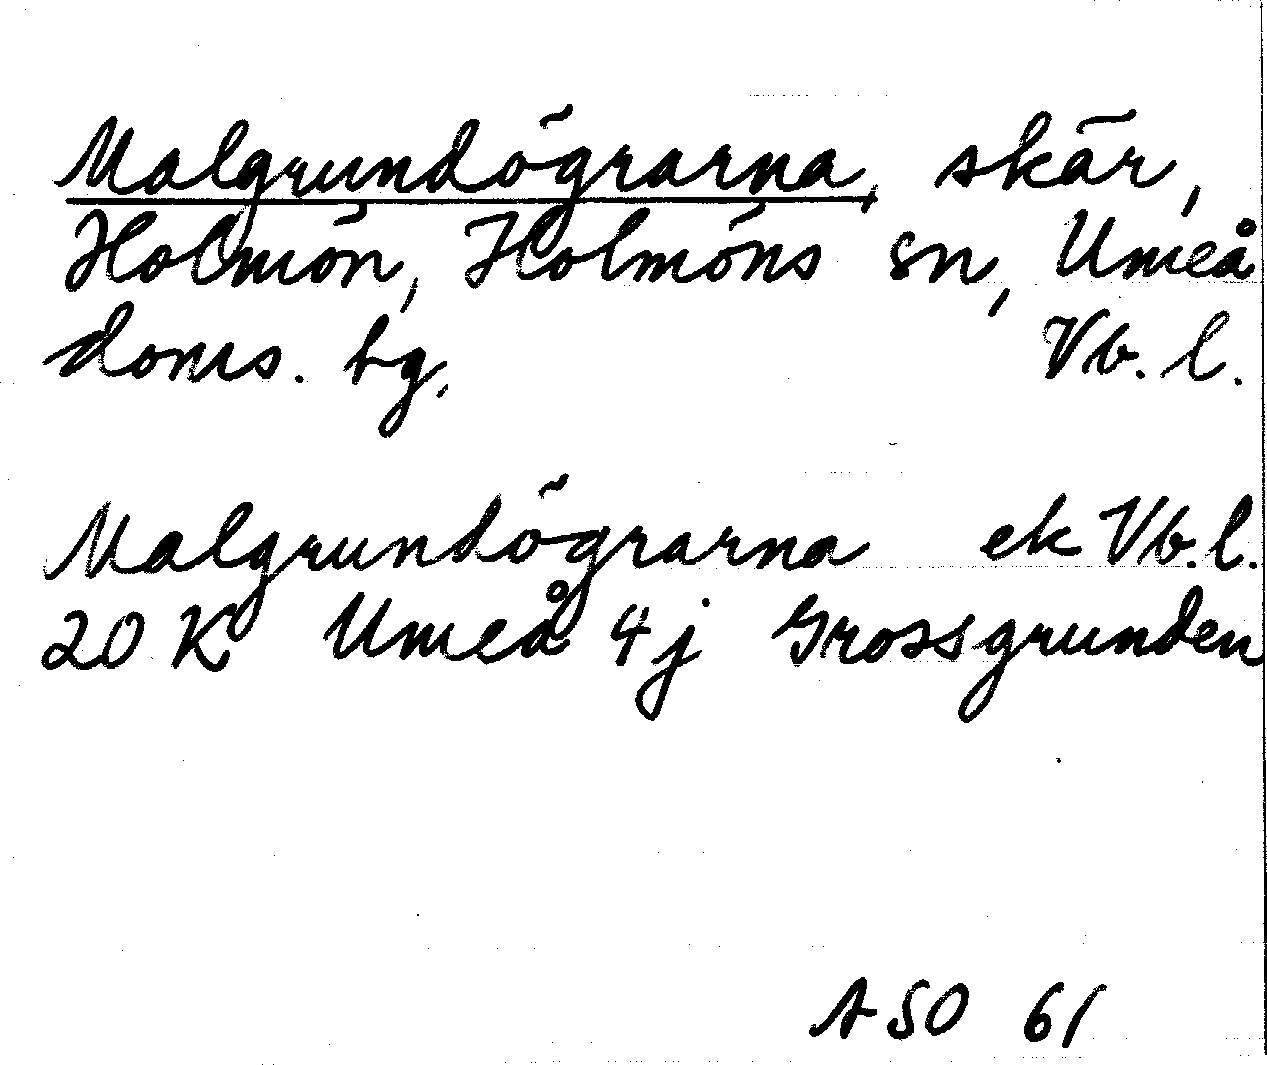 Malgrundögrarna, skär,
Holmön, Holmöns sn, Umeå
doms. tg. Vb. l.
Malgrundögrarna ek Vb. l.
20 K Umeå 4 j Grossgrunden
ASO 61